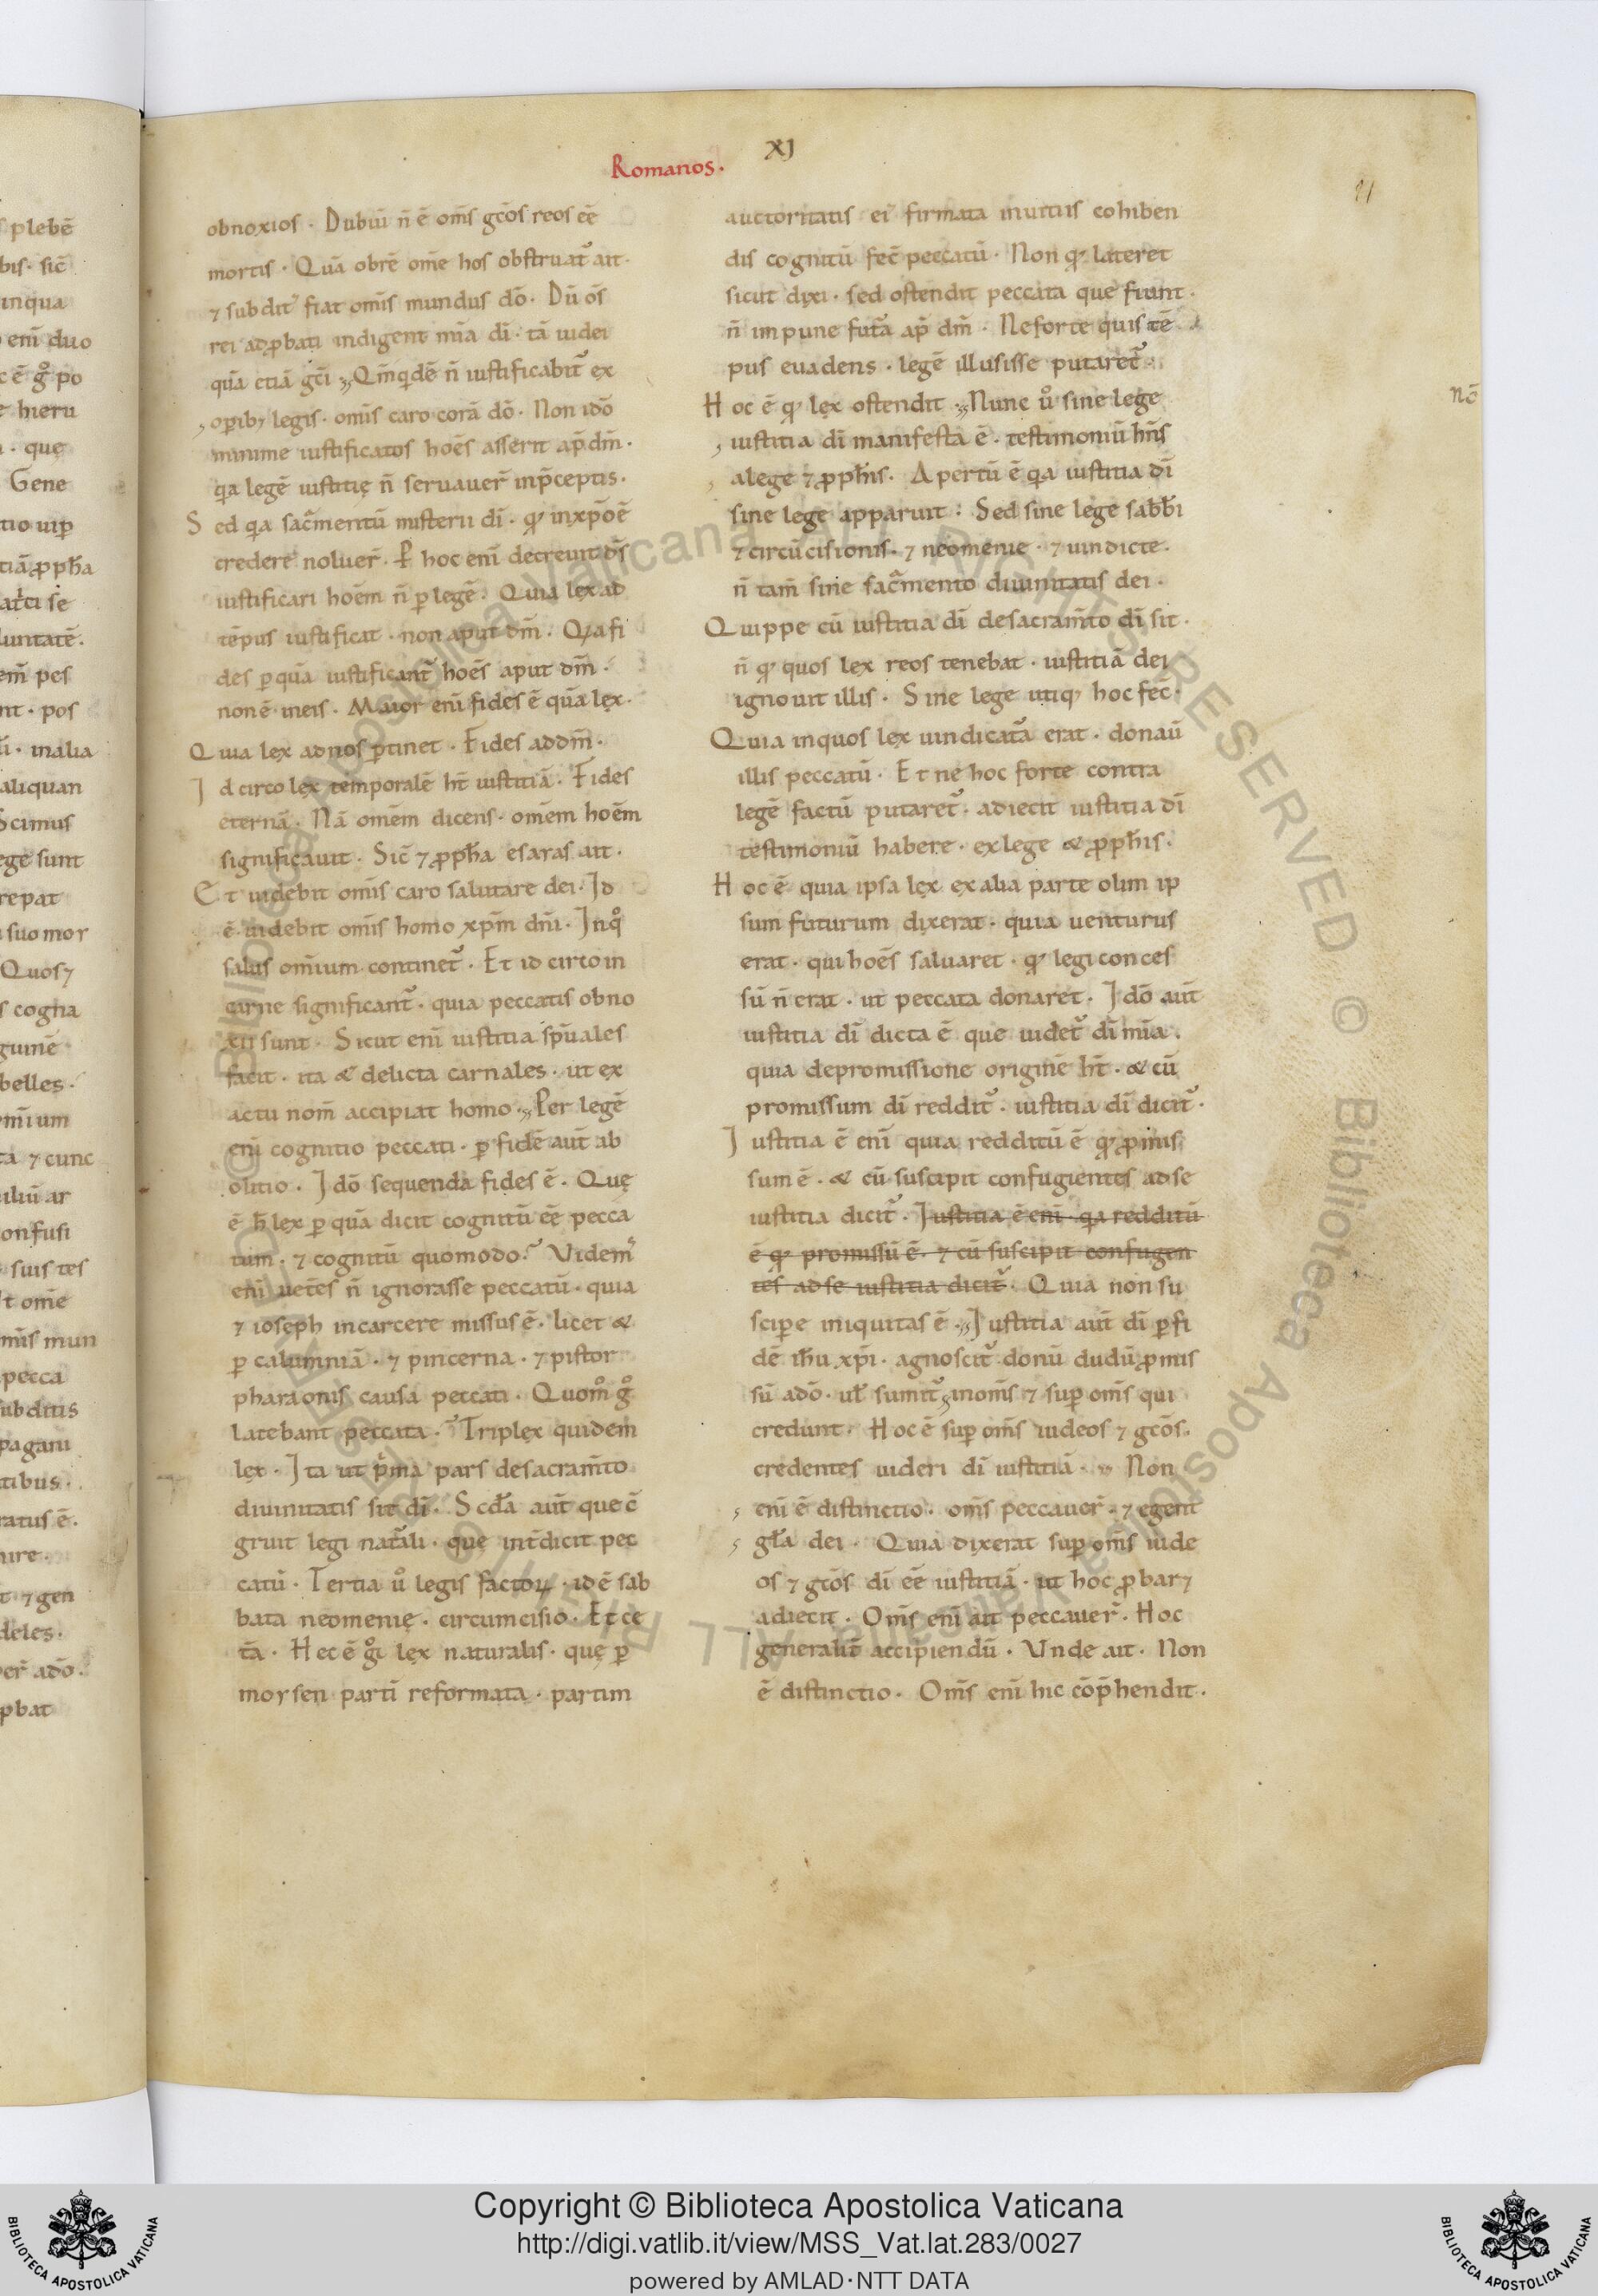 XI
Romanos.
11
obnoxios. Dubiū n̄ ē om̄s gētes reos eē
mortis. Quā obrē om̄e hos obstruat᷑ ait.
⁊ subdit᷑ fiat om̄is mundus dō. Dū om̄s
rei adꝓbati indigent mīa dī. tā iudei
quā etiā gētī. Qm̄ qͥdē n̄ iustificabit᷑ ex
operibꝫ legis. om̄is caro corā dō. Non idō
minime iustificatos hoēs asserit ap̄ dm̄.
qͥa legē iustitię n̄ seruauer̄ in p̄ceptis.
Sed qͥa sac̄mentū misterii dī. qd̄ in xp̄o ē
credere noluer̄. P hoc enī decreuit ds̄
iustificari hoēm n̄ ꝑ legē. Quia lex ad
tēpus iustificat. non aput dm̄. Quia fi
des ꝑ quā iustificant᷑ hoēs aput dm̄.
non ē in eis. Maior enī fides ē quā lex.
Quia lex ad nos ꝑtinet. Fides ad dm̄.
Idcirco lex temporalē ht̄ iustitiā. Fides
eternā. Nā om̄em dicens. om̄em hoēm
significauit. Sic̄ ⁊ ꝓph̄a esaias ait.
Et uidebit om̄is caro salutare dei. Id
ē uidebit om̄is homo xp̄m dn̄i. In qͦ
salus om̄ium continet᷑. Et idcirco in
carne significant᷑. quia peccatis obno
xii sunt. Sicut enī iustitia sp̄uales
facit. ita & delicta carnales. ut ex
actu nom̄ accipiat homo. Per legē
enī cognitio peccati. ꝑ fidē aut̄ ab
olitio. Idō sequenda fides ē. Quę
ē h̄ lex ꝑ quā dicit cognitū eē pecca
tum. ⁊ cognitū quomodo? Videm᷒
enī uet̄es n̄ ignorasse peccatū. quia
⁊ ioseph in carcere missus ē. licet &
ꝑ calumniā. ⁊ pincerna. ⁊ pistor
pharaonis causa peccati. Quom̊ gͦ
latebant peccata? Triplex quidem
lex. Ita ut pͥma pars de sacram̄to
diuinitatis sit dī. Scd̄a aut̄ que cō
gruit legi nat̄ali. que int̄dicit pec
catū. Tertia uͦ legis factoꝝ. id ē sab
bata neomenię. circumcisio. Et ce
t̄a. Hec ē gͥ lex naturalis. quę ꝑ
moysen partī reformata. partim
auctoritatis ei᷒ firmata in uitiis cohiben
dis cognitū fec̄ peccatū. Non qd̄ lateret
sicut dixi. sed ostendit peccata que fiunt.
n̄ impune fut̄a ap̄ dm̄. Ne forte quis tē
pus euadens. legē illusisse putaret᷑.
Hoc ē qd̄ lex ostendit. Nunc uͦ sine lege
iustitia dī manifesta ē. testimoniū hn̄s
a lege ⁊ ꝓph̄is. Apertū ē qͥa iustitia dī
sine lege apparuit. Sed sine lege sabb̄i
⁊ circūcisionis. ⁊ neomenie. ⁊ uindicte.
n̄ tam̄ sine sac̄mento diuinitatis dei.
Quippe cū iustitia dī de sacram̄to dī sit.
n̄ qd̄ quos lex reos tenebat. iustitiā dei
ignouit illis. Sine lege utiqꝫ hoc fec̄.
Quia in quos lex uindicat̄a erat. donaū
illis peccatū. Et ne hoc forte contra
legē factū putaret᷑. adiecit iustitia dī
testimoniū habere. ex lege & ꝓph̄is.
Hoc ē quia ipsa lex ex alia parte olim ip
sum futurum dixerat. quia uenturus
erat. qui hoēs saluaret. qd̄ legi conces
sū n̄ erat. ut peccata donaret. Idō aut̄
iustitia dī dicta ē que uidet᷑ dī mīa.
quia de promissione originē ht̄. & cū
promissum dī reddit᷑. iustitia dī dicit᷑.
Iustitia ē enī quia redditū ē qd̄ ꝓmis
sum ē. & cū suscipit confugientes ad se
iustitia dicit᷑. Iustitia ē enī qͥa redditū
ē qd̄ promissū ē. ⁊ cū suscipit confugen
tes ad se iustitia dicit᷑. Quia non su
scipe iniquitas ē. Iustitia aut̄ dī ꝑ fi
dē ih̄u xp̄i. agnoscit᷑ donū dudū ꝓmis
sū a dō. ul̄ sumit᷑. in om̄s ⁊ suꝑ om̄s qui
credunt. Hoc ē suꝑ om̄s iudeos ⁊ gētes.
credentes uideri dī iustitiā. Non
enī ē distinctio. om̄s peccauer̄. ⁊ egent
gl̄a dei. Quia dixerat suꝑ om̄s iude
os ⁊ gētes dī eē iustitiā. ut hoc ꝓbar⁊
adiecit. Om̄s enī ait peccauer̄. Hoc
generalit̄ accipiendū. Vnde ait. Non
ē distinctio. Om̄s enī hic cōp̄hendit.
nō
Copyright © Biblioteca Apostolica Vaticana
http://digi.vatlib.it/view/MSS_Vat.lat.283/0027
powered by AMLAD·NTT DATA
BIBLIOTECA APOSTOLICA VATICANA
BIBLIOTECA APOSTOLICA VATICANA